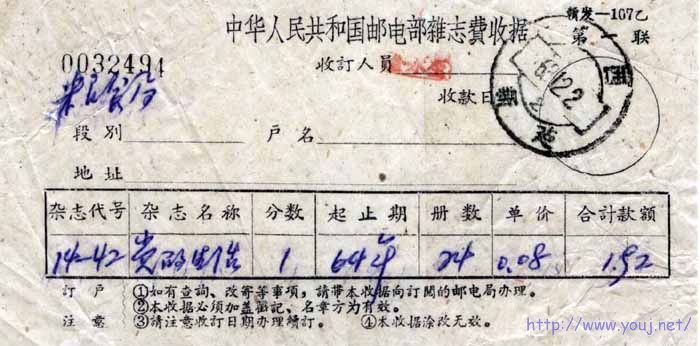 报发—167乙
中华人民共和国邮电部雜志費收据 第一联
0032494 收訂人員
收款日
段别 户名
地址
杂志代号 杂志名称 分数 起止期 册数 单价 合計款額
14-42 党的生活 1 64年 24 0.08 1.92
訂户 ①如有查詢、改寄等事項，請带本收据向訂閲的邮电局办理。
②本收据必須加盖戳記、名章方为有效。
注意 ③請注意收訂日期办理續訂。 ④本收据涂改无效。
http://www.youj.net/